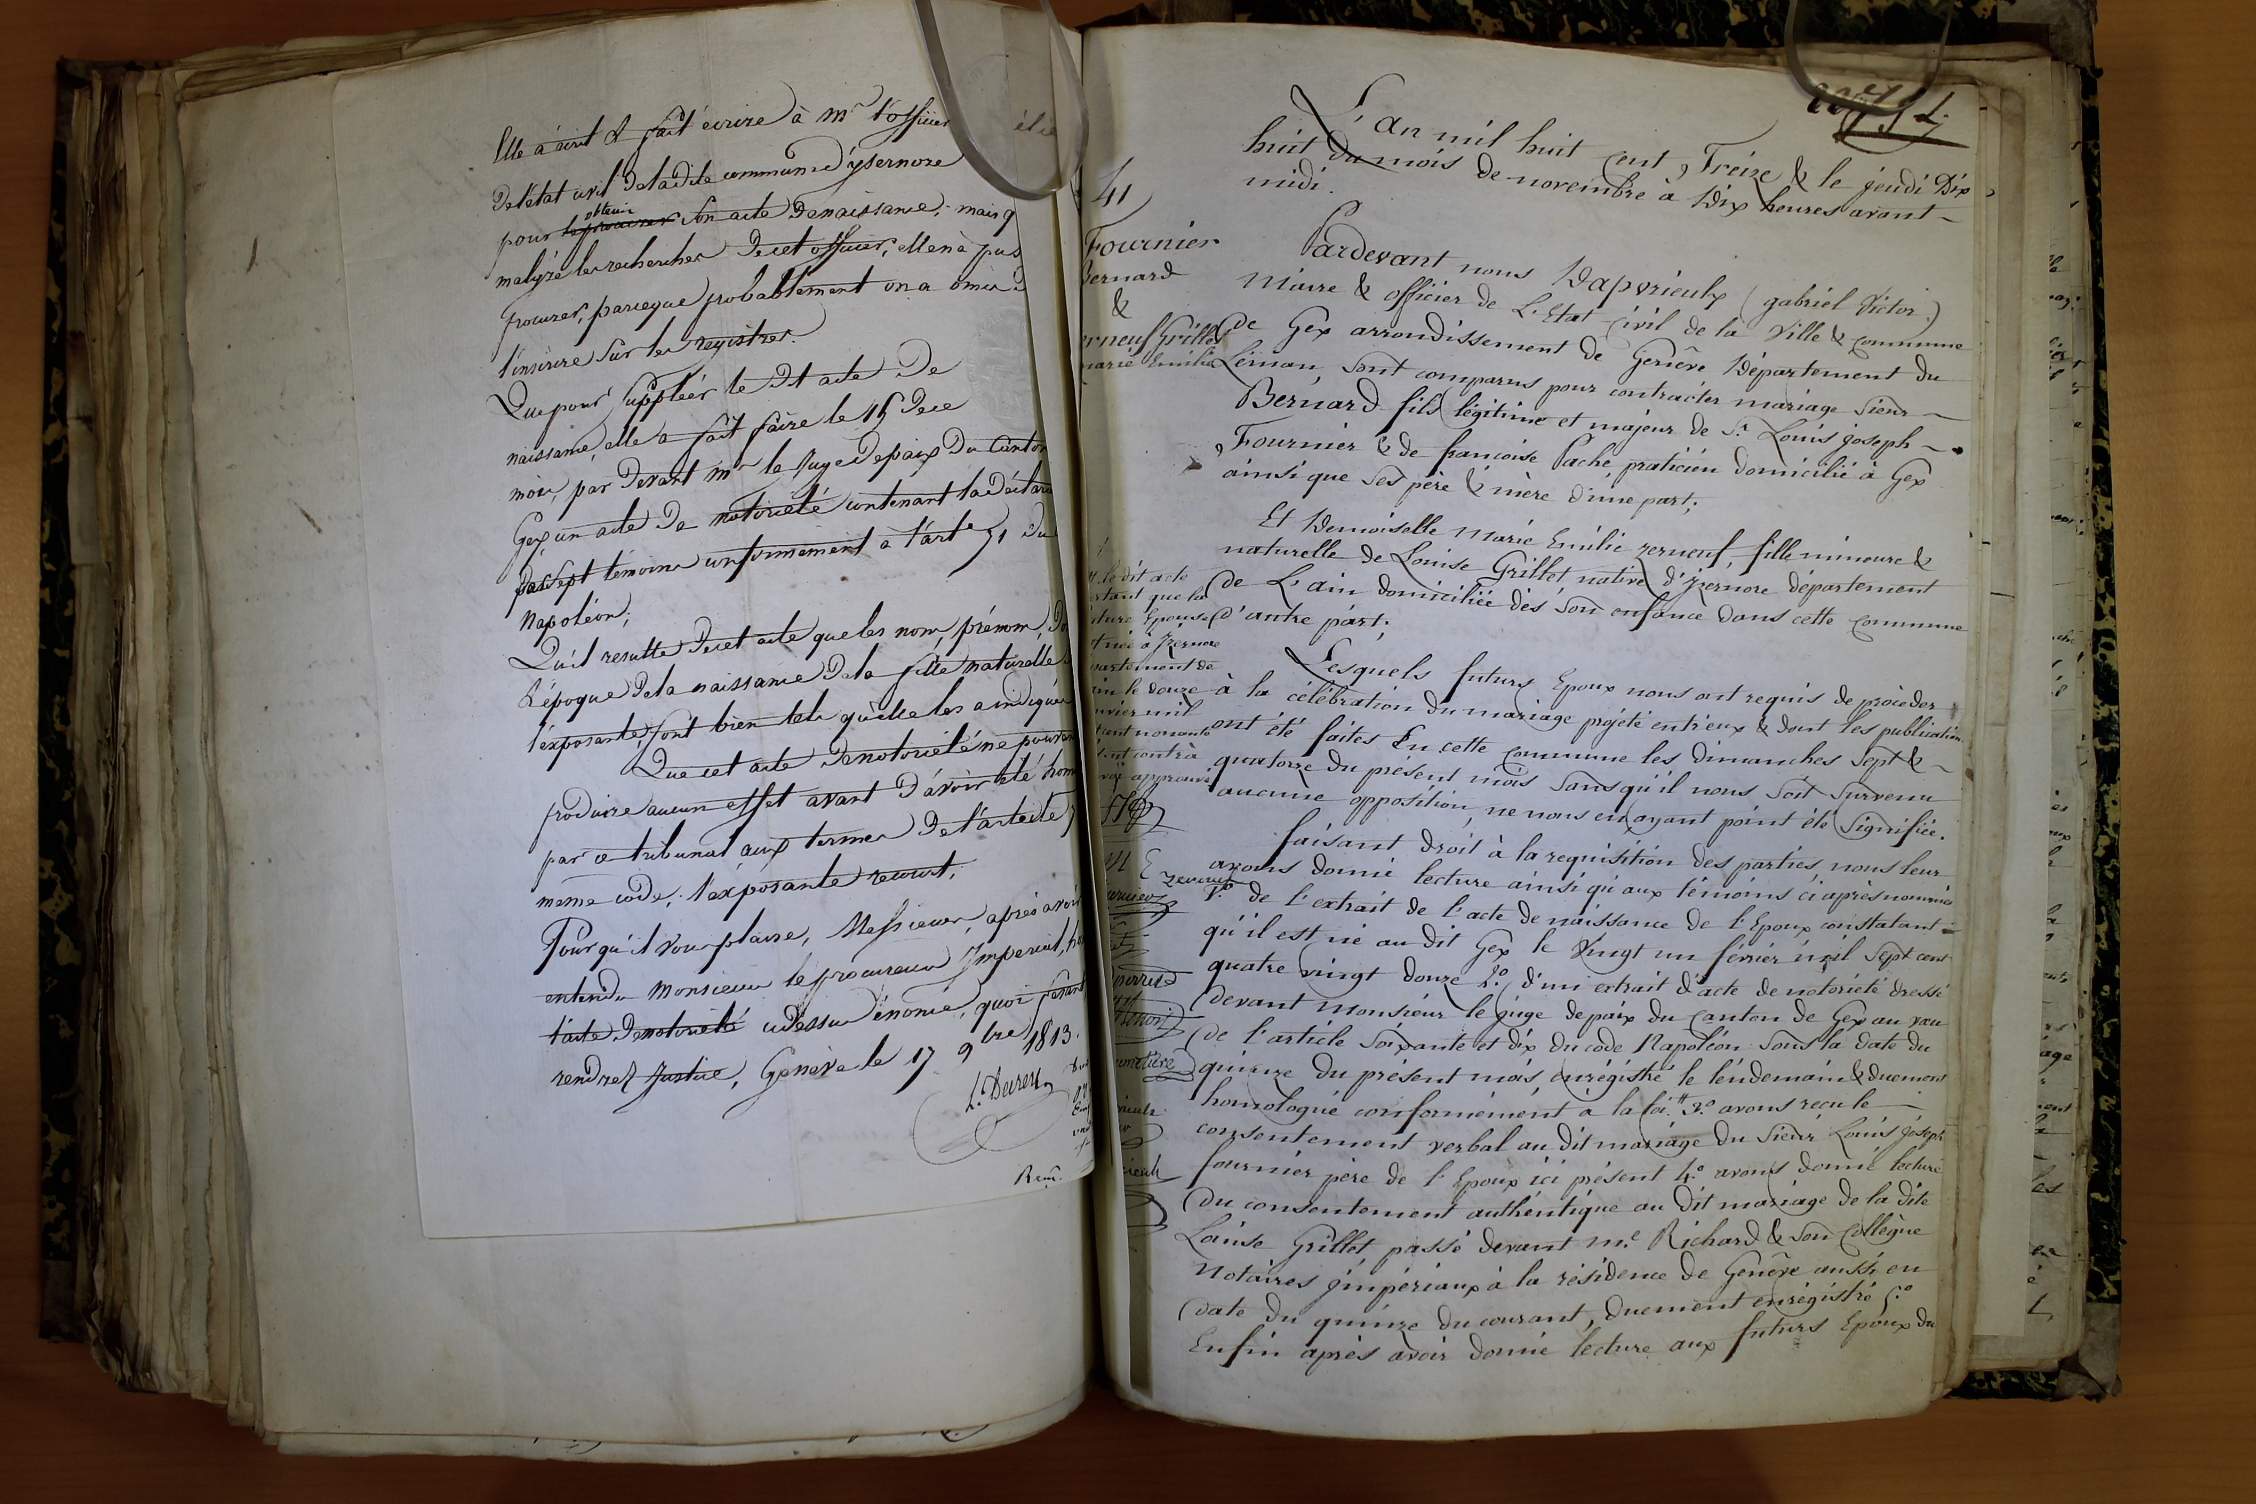 Elle à écrit & fait écrire à Mr. l'officier
De l'état civil De ladite commune d'ysernore
obtenir
pour son acte De naissance; mais q
malgré les recherches De cet officier, elle n'a pas
procurer, parceque probablement on a omis d
l'inscrire sur les registres.
Que pour suppléer le Dt acte De
naissance, elle a fait faire le 15 De ce
mois, par Devant Mr. le Juge De paix Du Canton
Gex, un acte De notoriété contenant la Déclara
par sept témoins conformément à l'art. 71 du
Napoléon;
Qu'il resulte De cet acte que les nom, prénom, Do
& époque De la naissance De la fille naturelle
l'exposante, sont bien tels qu'elle les a indiqués
Que cet acte De notoriété ne pouvan
produire aucun effet avant D'avoir été hom
par ce tribunal aux termes De l'article 7
même code, l'exposante recourt,
Pour qu'il vous plaise, Messieurs, après avoir
entendu Monsieur le procureur Imperial, ho
l'acte De notoriété ci dessus énoncé, quoi fesant
rendrez Justice, Genève le 17 9bre 1813.
41
Fournier
Bernard
&
erneuf Grillet
marie Emilie
L'an mil huit cent Treize & le jeudi Dix
huit du mois de novembre à Dix heures avant
midi.
Pardevant nous Dapvrieulx (gabriel Victor)
Maire & officier de L'Etat Civil de la Ville & commune
de Gex arrondissement de Genêve Département du
Léman, sont comparus pour contracter mariage Sieur
Bernard fils légitime et majeur de Sr. Louis joseph
Fournier & de francoise Paché, praticien domicilié à Gex
ainsi que ses père & mère d'une part;
Et Demoiselle Marie Emilie zerneuf, fille mineure &
naturelle de Louise Grillet native d'Izernore département
de L'ain domiciliée dès son enfance dans cette commune
d'autre part;
Lesquels futurs Epoux nous ont requis de procéder
à la célébration du mariage projeté entr'eux & dont les publications
ont été faites En cette commune les dimanches Sept &
quatorze du présent mois sans qu'il nous soit survenu
aucune opposition, ne nous en ayant point été signifiée.
faisant droit à la requisition des parties, nous leur
avons donné lecture ainsi qu'aux témoins ci après nommés
1°. de l'extrait de l'acte de naissance de l'Epoux constatant
qu'il est né au dit Gex le Vingt un février mil sept cent
quatre vingt douze 2°. d'un extrait d'acte de notoriété dressé
devant Monsieur le juge de paix du canton de Gex au vœu
de l'article soixante et dix du code Napoléon sous la date du
quinze du présent mois, enrégistré le lendemain & duement
homologué conformément a la loi. # 3°. avons recu le
consentement verbal au dit mariage du Sieur Louis joseph
fournier père de l'Epoux ici présent 4°. avons donné lecture
du consentement authéntique au dit mariage de la dite
Louise Grillet passé devant Me. Richard & son Collègue
Notaires jmpériaux à la résidence de Genêve aussi en
date du quinze du courant, duement enrégistré 5°.
Enfin après avoir donné lecture aux futurs Epoux du
le dit acte
que la
Epouse
née à Izernore
département de
le douze
mil